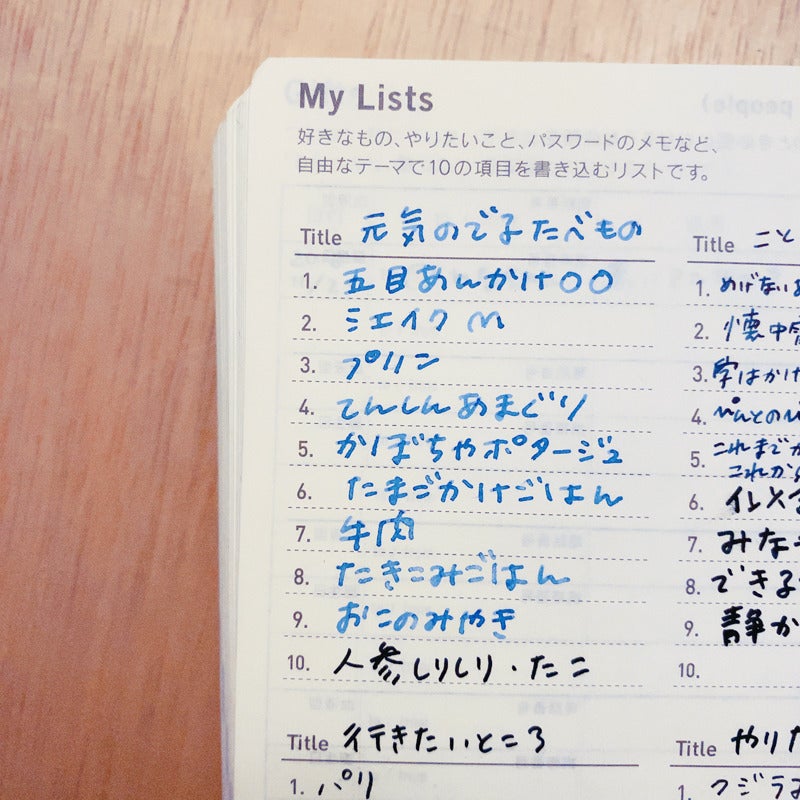 My Lists
好きなもの、やりたいこと、パスワードのメモなど、
自由なテーマで10の項目を書き込むリストです。
Title 元気のでるたべもの
1. 五目あんかけ〇〇
2. シェイク M
3. プリン
4. てんしんあまぐり
5. かぼちゃポタージュ
6. たまごかけごはん
7. 牛肉
8. たきこみごはん
9. おこのみやき
10. 人参しりしり・たこ
Title 行きたいところ
1. パリ
Title こと
1. めげない
2. 懐中
3. 字はかけ
4. ぺんとの
5. これまで
これから
6.
7. みな
8. できる
9. 静か
10.
Title やりた
1. クジラ
people)